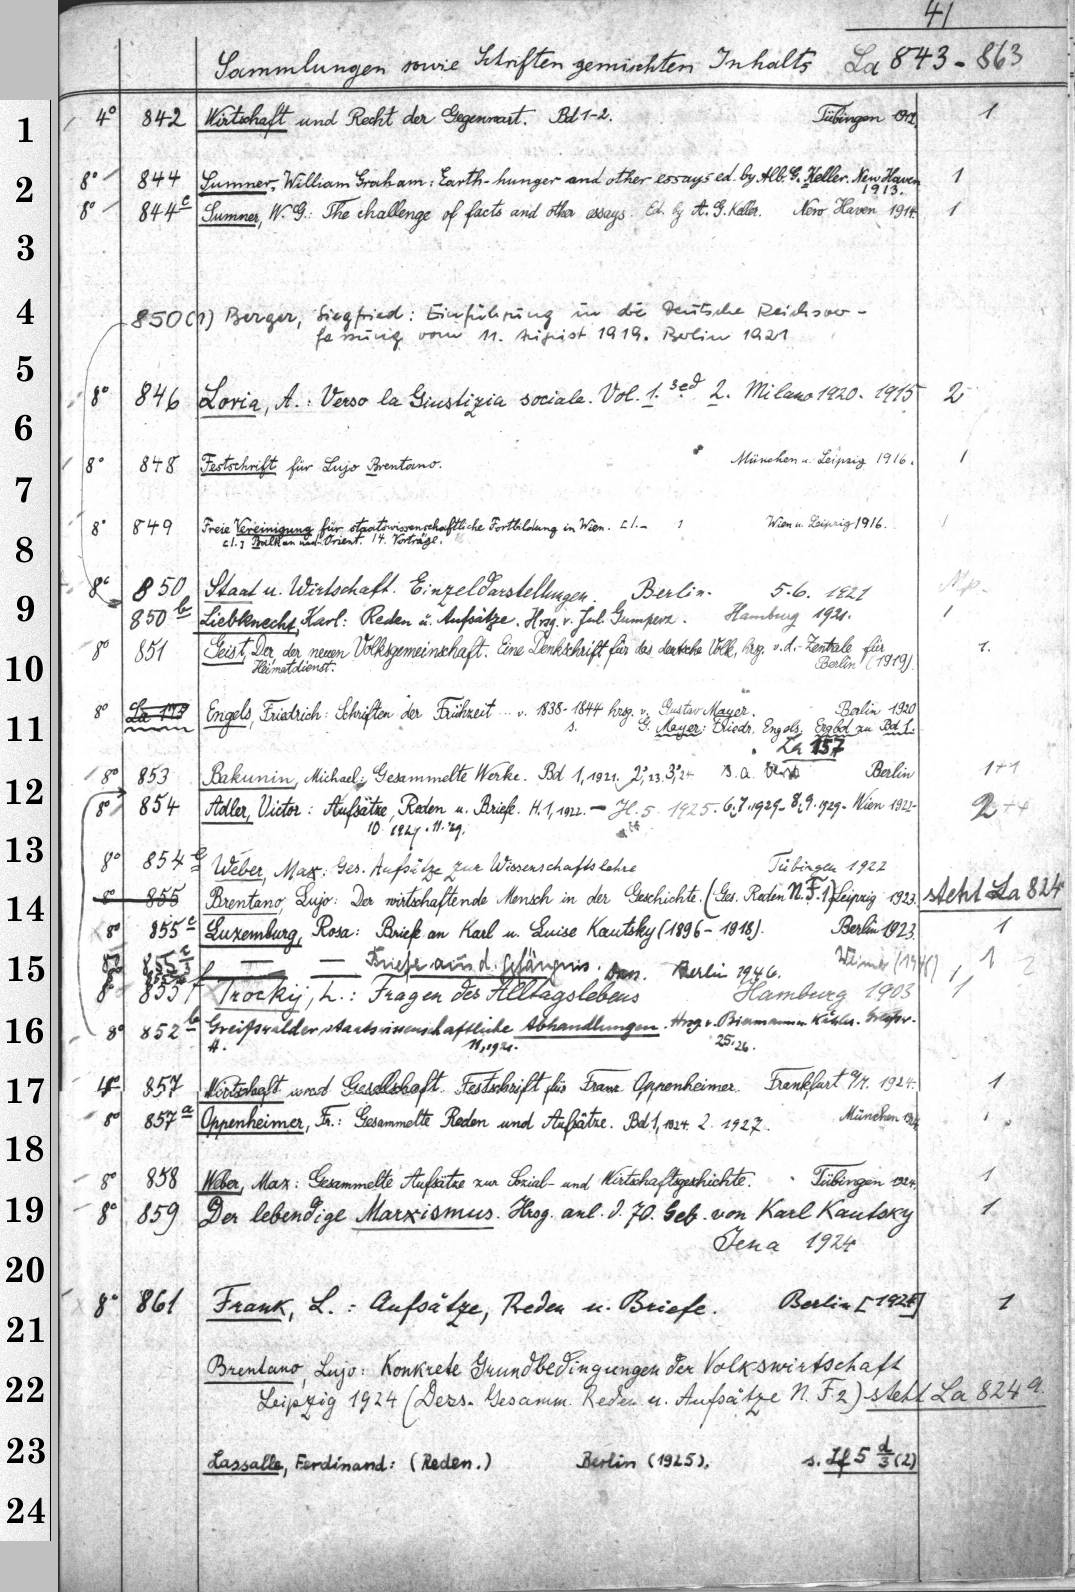 41
Sammlungen sowie Schriften gemischten Inhalts La 843-863
1
4° 842 Wirtschaft und Recht der Gegenwart. Bd 1-2. Tübingen 1912. 1
2
8° 844 Sumner, William Graham: Earth-hunger and other essays ed. by Alb. G. Keller. New Haven 1
1913.
8° 844c Sumner, W. G.: The challenge of facts and other essays. Ed. by A. G. Keller. New Haven 1914. 1
3
4
850(1) Berger, Siegfried: Einführung in die Deutsche Reichsver-
fassung vom 11. August 1919. Berlin 1921
5
8° 846 Loria, A.: Verso la Giustizia sociale. Vol. 1. sed 2. Milano 1920. 1915 2
6
8° 848 Festschrift für Lujo Brentano. München u. Leipzig 1916. 1
7
8° 849 Freie Vereinigung für staatswissenschaftliche Fortbildung in Wien. Wien u. Leipzig 1916. 1
Balkan und Orient. 14. Vorträge.
8
8° 850 Staat u. Wirtschaft. Einzeldarstellungen. Berlin. 5-6. 1921
9
850b Liebknecht, Karl: Reden u. Aufsätze. Hrsg. v. Jul. Gumperz. Hamburg 1921. 1
8° 851 Geist, Der der neuen Volksgemeinschaft. Eine Denkschrift für das deutsche Volk, hrg. v. d. Zentrale für 1.
10
Heimatdienst. Berlin (1919).
8° La 175 Engels, Friedrich: Schriften der Frühzeit ... v. 1838-1844 hrsg. v. Gustav Mayer. Berlin 1920
11
s. G. Mayer: Friedr. Engels. Ergbd zu Bd 1.
La 157
8° 853 Bakunin, Michael: Gesammelte Werke. Bd 1, 1921. 2, 23. 3, 24 Berlin 1+1
12
8° 854 Adler, Victor: Aufsätze, Reden u. Briefe. H. 1, 1922. - H. 5. 1925. 6, 7. 1929- 8, 9. 1929- Wien 1922- 2
10 1929. 11. 29.
13
8° 854e Weber, Max: Ges. Aufsätze zur Wissenschaftslehre Tübingen 1922
14
8° 855 Brentano, Lujo: Der wirtschaftende Mensch in der Geschichte. (Ges. Reden N. F. 1) Leipzig 1923. steht La 824
8° 855c Luxemburg, Rosa: Briefe an Karl u. Luise Kautsky (1896-1918). Berlin 1923. 1
15
8° — — Briefe aus d. Gefängnis. Berlin 1946. 1
8° 855f Trockij, L.: Fragen des Alltagslebens Hamburg 1903 1
16
8° 852b Greifswalder staatswissenschaftliche Abhandlungen. Hrsg. v. Biermann u. Kähler. Greifsw.
4. 11, 1921. 25. 26.
17
857 Wirtschaft und Gesellschaft. Festschrift für Franz Oppenheimer. Frankfurt a/M. 1924. 1
8° 857a Oppenheimer, Fr.: Gesammelte Reden und Aufsätze. Bd 1, 1924. 2. 1927. München 1924. 1
18
8° 858 Weber, Max: Gesammelte Aufsätze zur Sozial- und Wirtschaftsgeschichte. Tübingen 1924. 1
19
8° 859 Der lebendige Marxismus. Hrsg. anl. d. 70. Geb. von Karl Kautsky 1
Jena 1924
20
8° 861 Frank, L.: Aufsätze, Reden u. Briefe. Berlin [1924] 1
21
Brentano, Lujo: Konkrete Grundbedingungen der Volkswirtschaft
22
Leipzig 1924 (Ders. Gesamm. Reden u. Aufsätze N. F. 2) steht La 824a.
23
Lassalle, Ferdinand: (Reden.) Berlin (1925). s. If 5 d/3 (2)
24